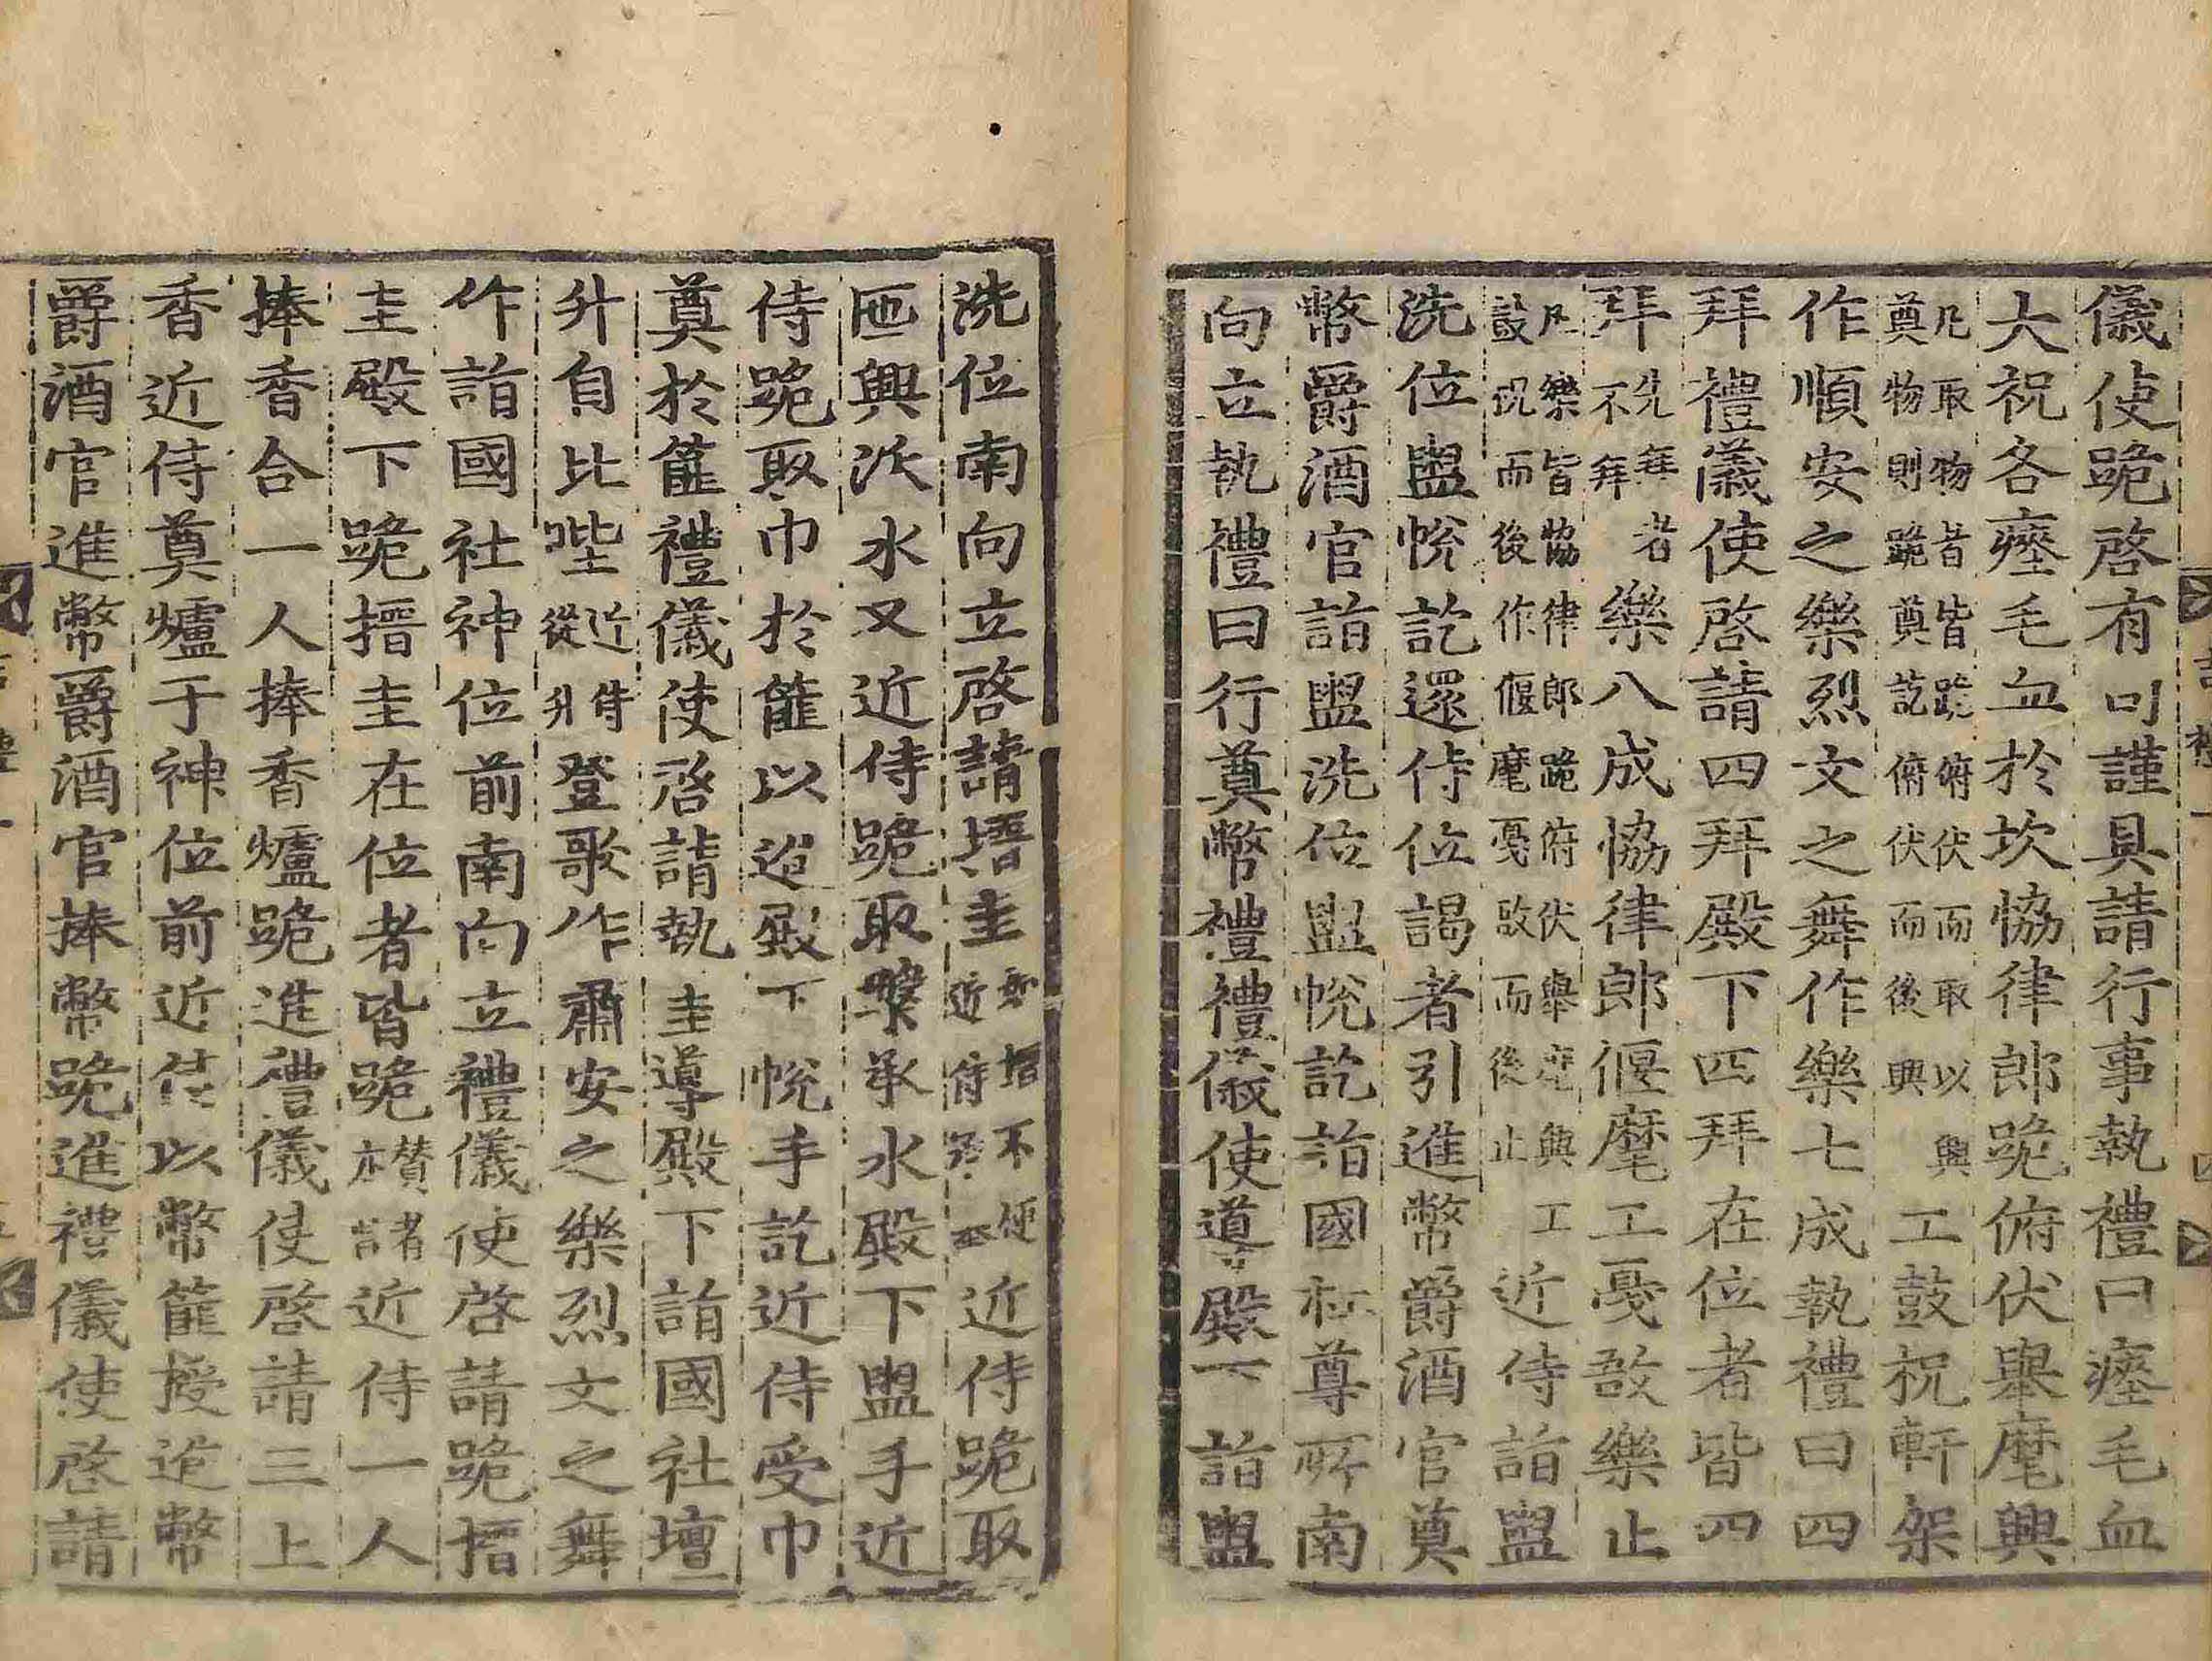 儀使跪啓有司謹具請行事執禮曰瘞毛血
大祝各瘞毛血於坎協律郎跪俯伏擧麾興
凡取物者皆跪俯伏而取以興
奠物則跪奠訖俯伏而後興
工鼓柷軒架
作順安之樂烈文之舞作樂七成執禮曰四
拜禮儀使啓請四拜殿下四拜在位者皆四
拜
先拜者
不拜
樂八成協律郎偃麾工戞敔樂止
凡樂皆協律郎跪俯伏擧麾興工
鼓柷而後作偃麾戞敔而後止
近侍詣盥
洗位盥帨訖還侍位謁者引進幣爵酒官奠
幣爵酒官詣盥洗位盥帨訖詣國社尊所南
向立執禮曰行奠幣禮禮儀使導殿下詣盥
洗位南向立啓請搢圭
如搢不便
近侍承奉
近侍跪取
匜興沃水又近侍跪取槃承水殿下盥手近
侍跪取巾於篚以進殿下帨手訖近侍受巾
奠於篚禮儀使啓請執圭導殿下詣國社壇
升自北陛
近侍
從升
登歌作肅安之樂烈文之舞
作詣國社神位前南向立禮儀使啓請跪搢
圭殿下跪搢圭在位者皆跪
贊者
亦唱
近侍一人
捧香合一人捧香爐跪進禮儀使啓請三上
香近侍奠爐于神位前近侍以幣篚授進幣
爵酒官進幣爵酒官捧幣跪進禮儀使啓請